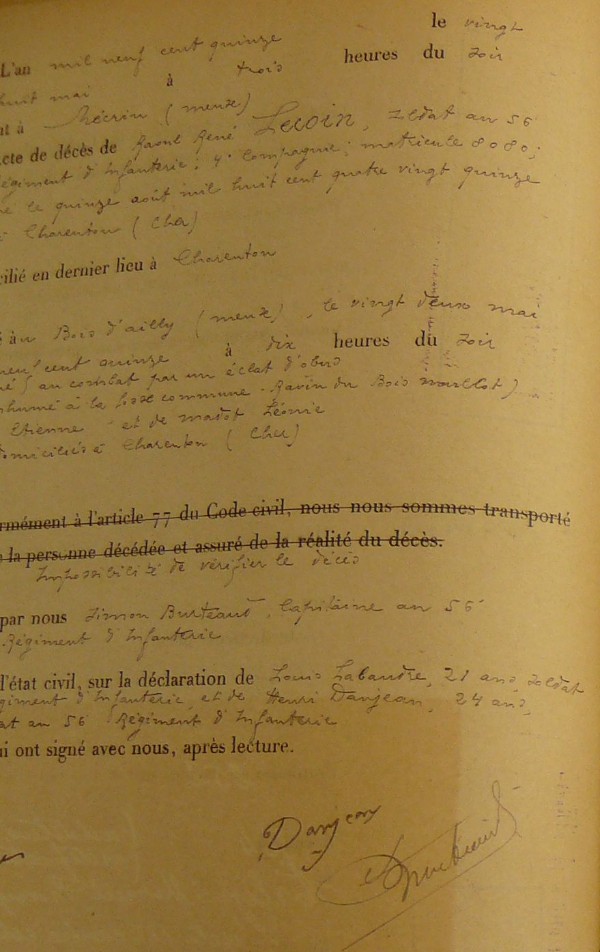 L'an mil neuf cent quinze le vingt
huit mai à trois heures du soir
t à Mécrin (meuse)
cte de décès de Raoul René Lecoin, soldat au 56
égiment d'Infanterie; 4e compagnie; matricule 8080;
é le quinze août mil huit cent quatre vingt quinze
à Charenton (Cher)
cilié en dernier lieu à Charenton
é au Bois d'ailly (meuse), le vingt deux mai
neuf cent quinze à dix heures du soir
ué) au combat par un éclat d'obus
nhumé à la fosse commune. Ravin du Bois mouillot)
Etienne et de Léonie
domiciliés à Charenton (Cher)
rmément à l'article 77 du Code civil, nous nous sommes transporté
la personne décédée et assuré de la réalité du décès.
Impossibilité de vérifier le décès
par nous Simon Capitaine au 56e
Régiment d'Infanterie
l'état civil, sur la déclaration de Louis 21 ans, soldat
giment d'Infanterie, et de Henri Danjean, 24 ans,
at au 56 Régiment d'Infanterie
ui ont signé avec nous, après lecture.
Danjean